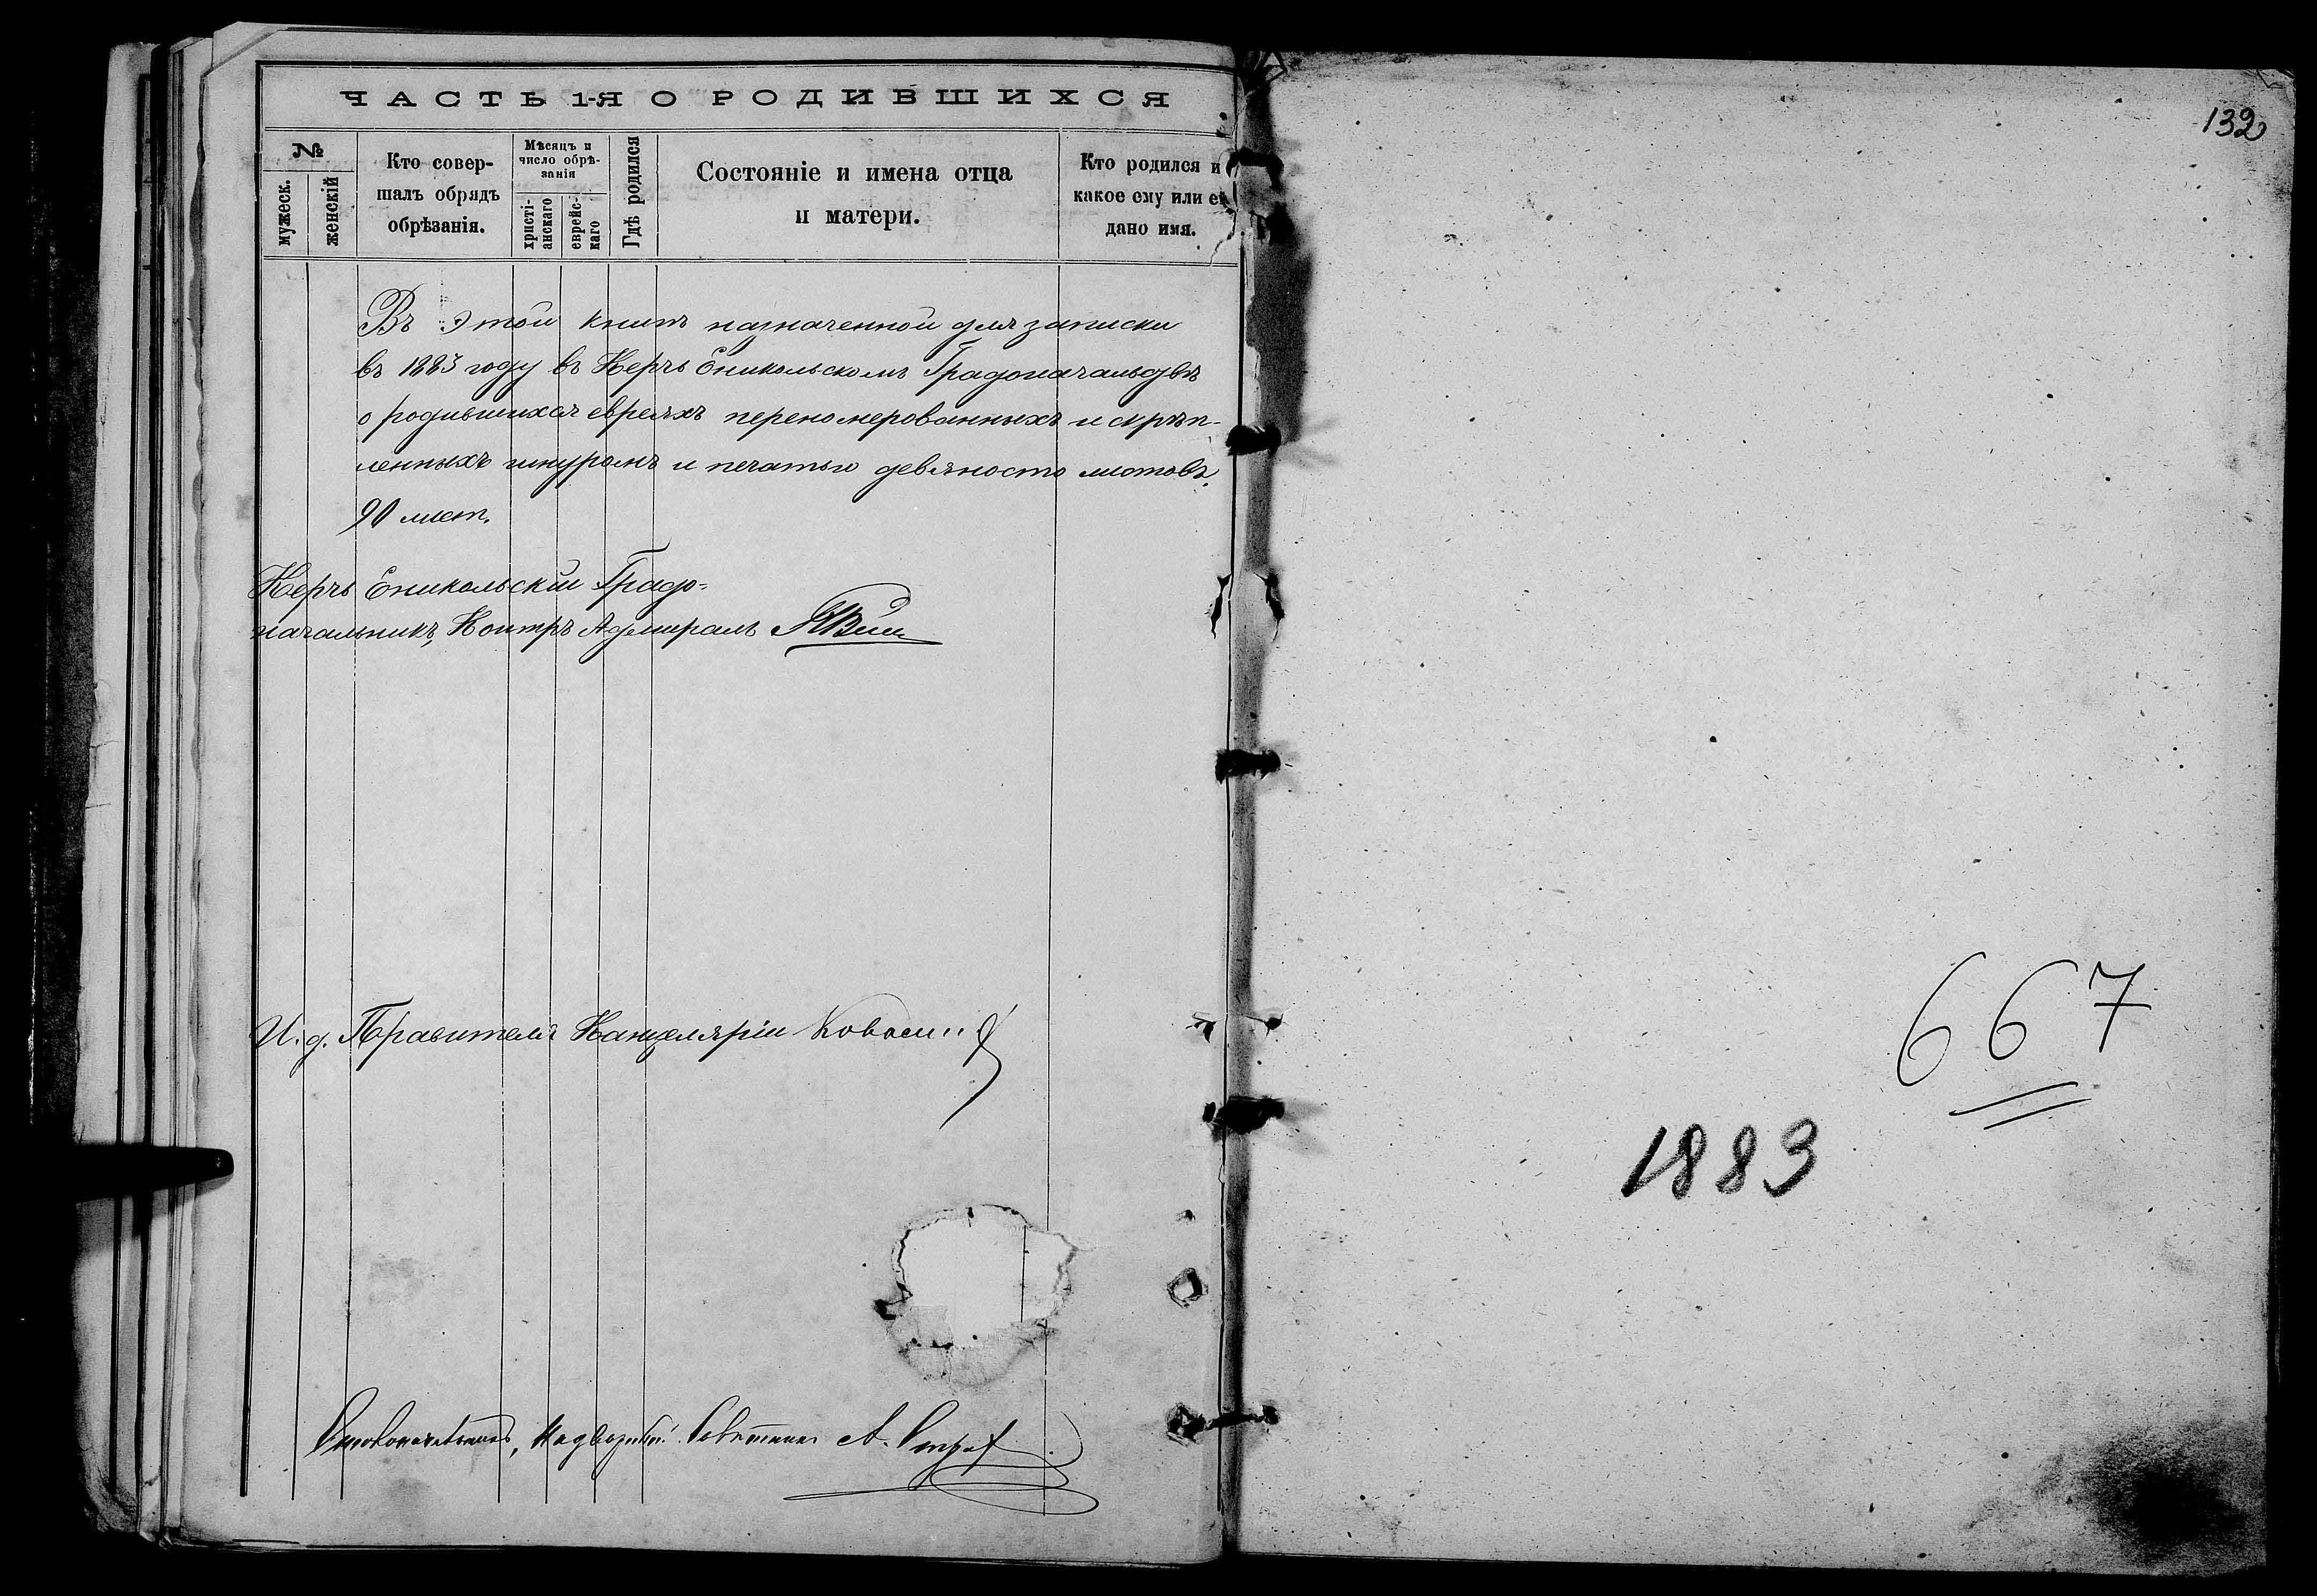 ЧАСТЬ 1-Я О РОДИВШИХСЯ
№
мужеск.
женскій
Кто совер-
шалъ обрядъ
обрѣзанія.
Мѣсяцъ и
число обрѣ-
занія
христі-
анскаго
еврейс-
каго
Гдѣ родился
Состояніе и имена отца
и матери.
Кто родился и
какое ему или ей
дано имя.
Въ этой книгѣ назначенной для записки
въ 1883 году въ Керчь Еникольскомъ Градоначальствѣ
о родившихся евреяхъ переномерованныхъ и скрѣп-
ленныхъ шнуромъ и печатью девяносто листовъ.
90 лист.
Керчь Еникольскій Градо-
начальникъ, Контръ Адмиралъ
И. д. Правителя Канцеляріи
Столоначальникъ, Надворный Совѣтникъ А.
132
667
1883